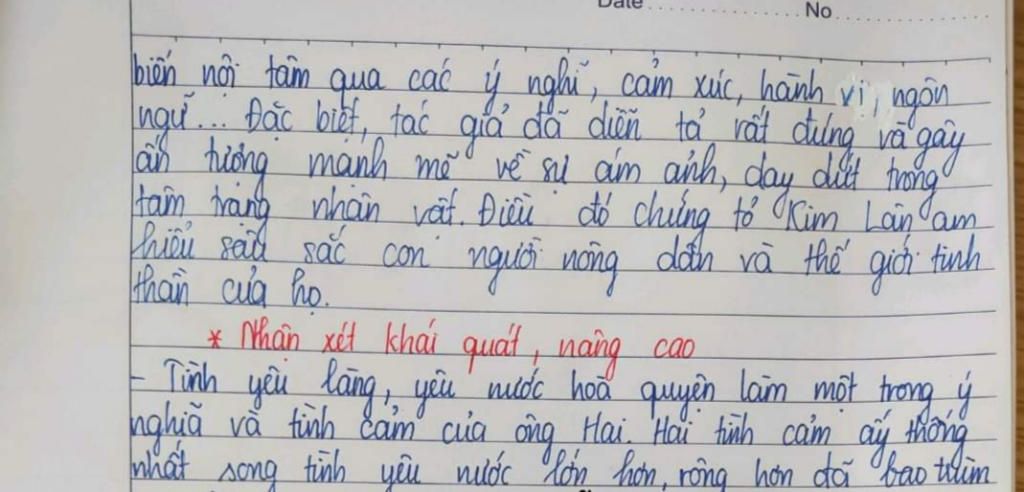 Date ............... No ...............
biến nội tâm qua các ý nghĩ, cảm xúc, hành vi, ngôn
ngữ... Đặc biệt, tác giả đã diễn tả rất đúng và gây
ấn tượng mạnh mẽ về sự ám ảnh, day dứt trong
tâm trạng nhân vật. Điều đó chứng tỏ Kim Lân am
hiểu sâu sắc con người nông dân và thế giới tinh
thần của họ.
* Nhận xét khái quát, nâng cao
- Tình yêu làng, yêu nước hoà quyện làm một trong ý
nghĩa và tình cảm của ông Hai. Hai tình cảm ấy thống
nhất song tình yêu nước lớn hơn, rộng hơn đã bao trùm